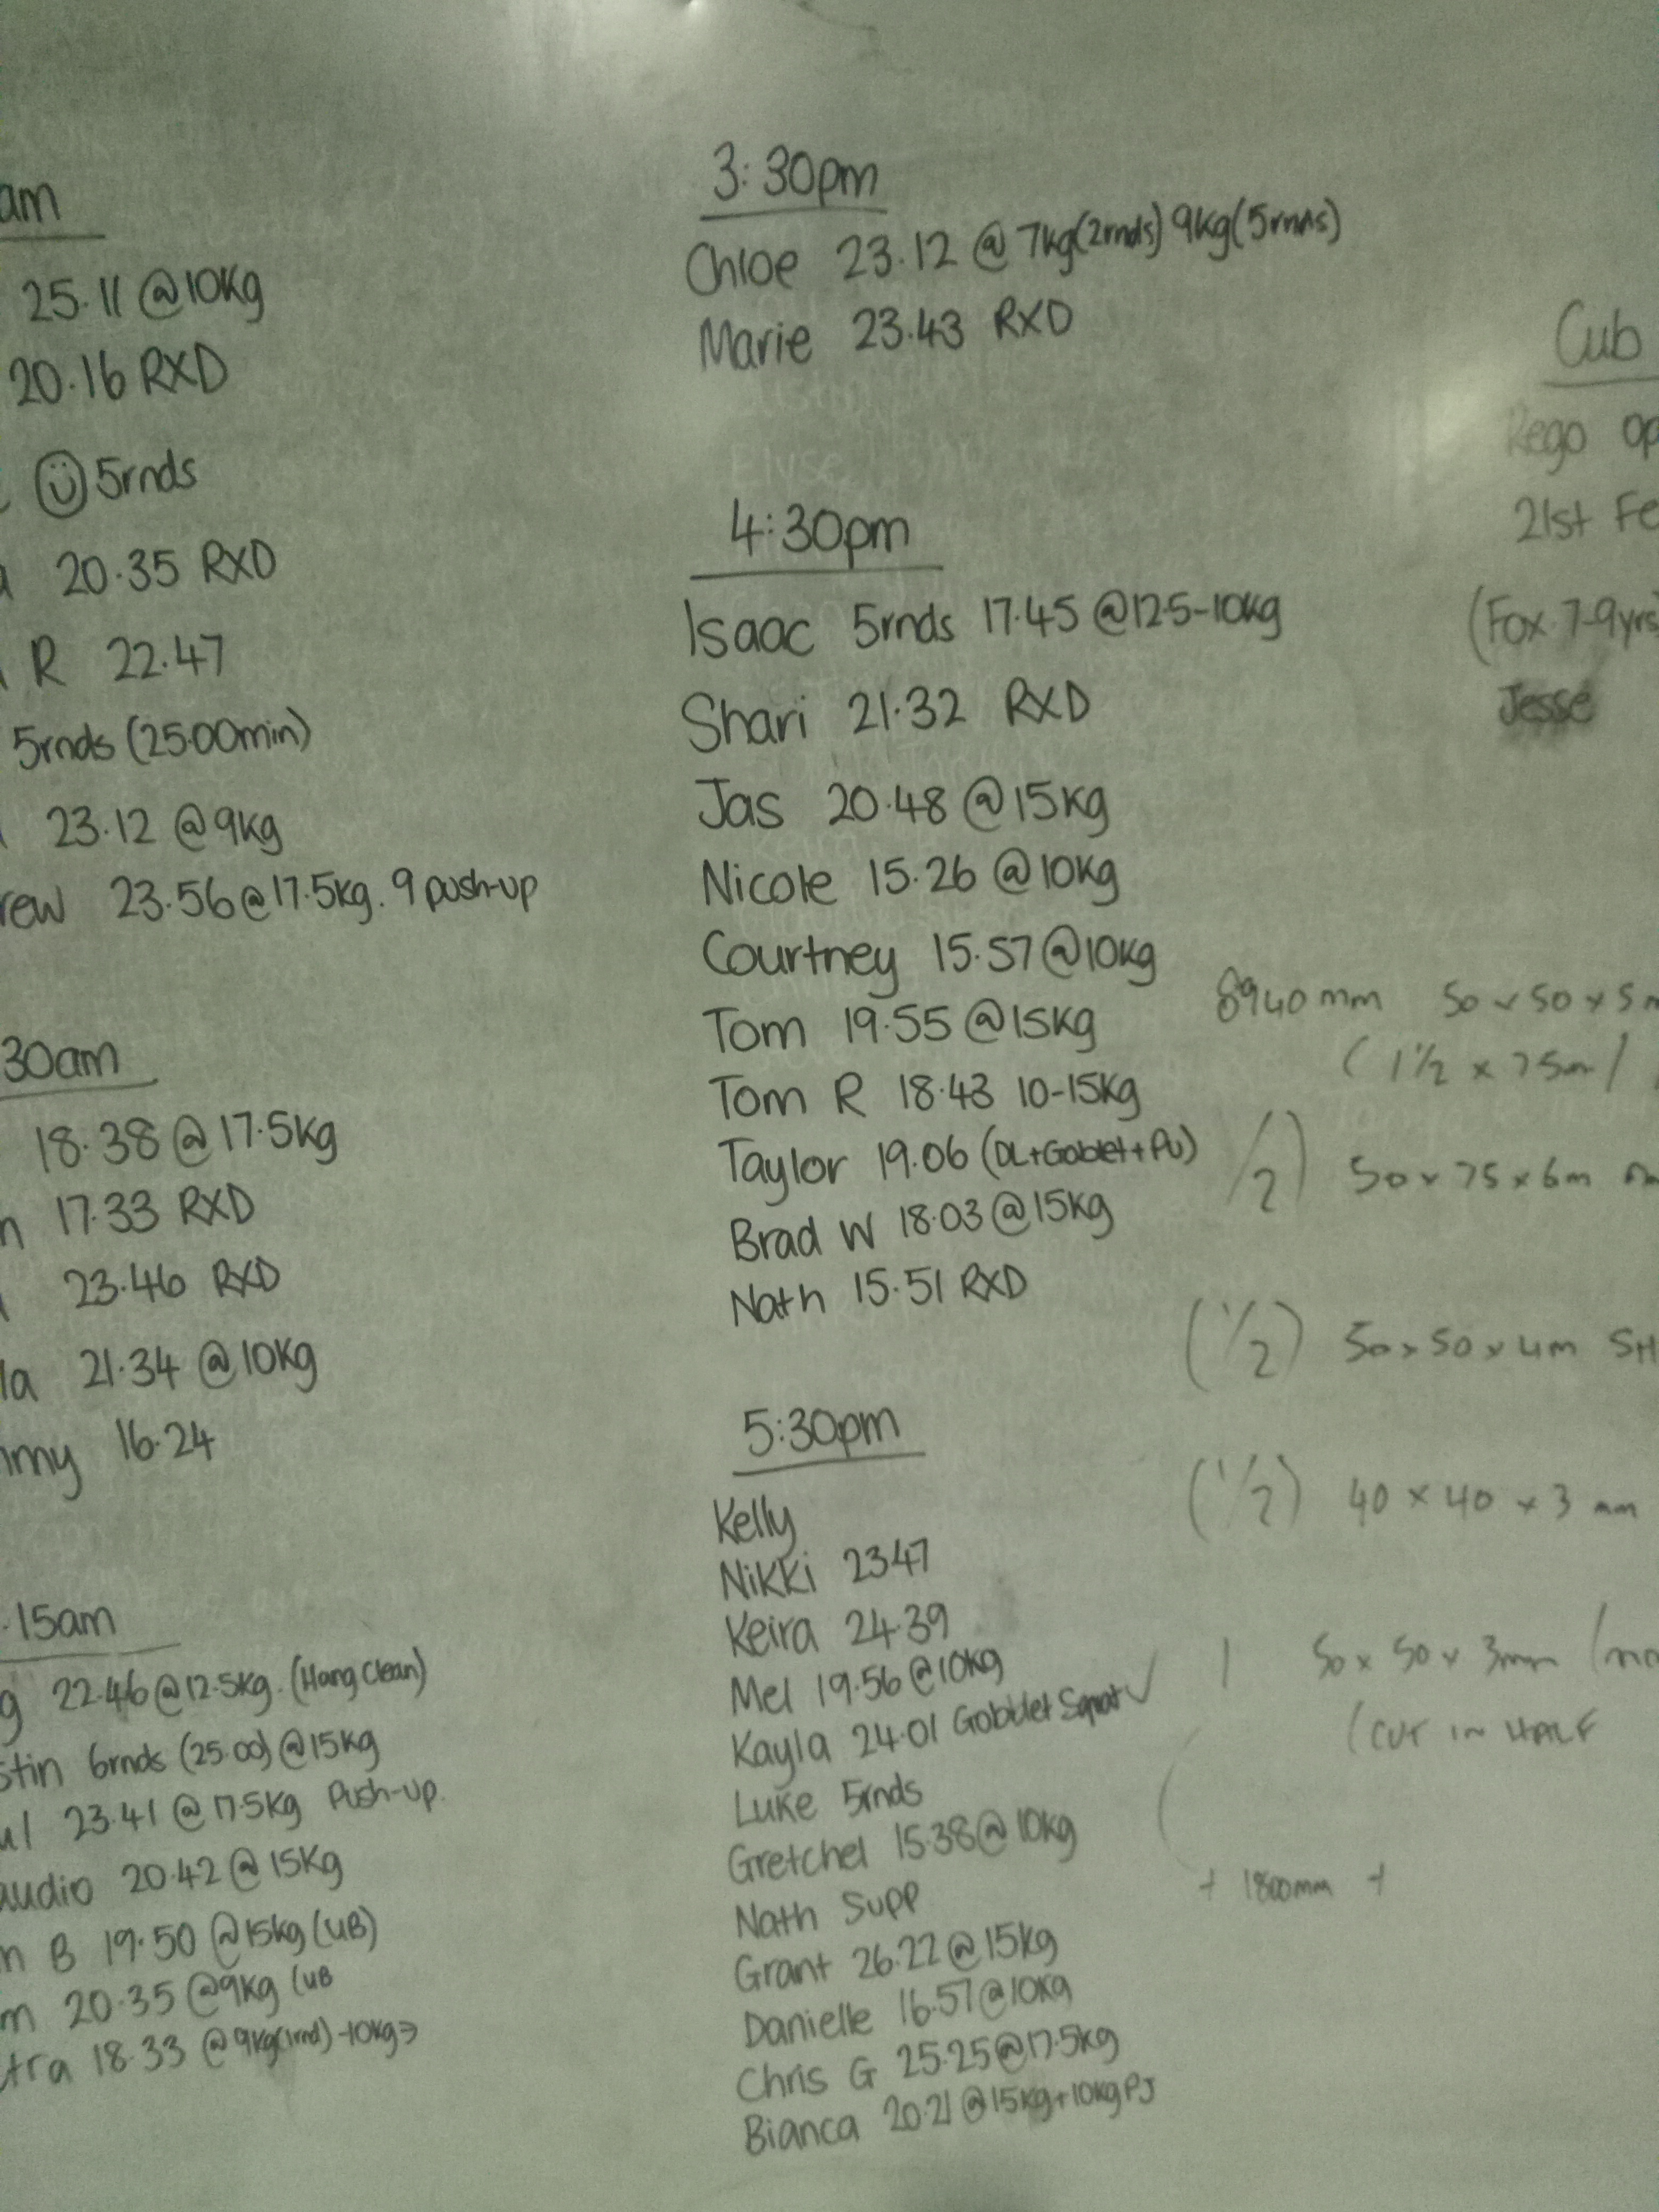 am
25.11 @10kg
20.16 RXD
5rnds
20.35 RXD
R 22.47
5rnds (25.00min)
23.12 @9kg
rew 23.56@17.5kg. 9 push-up
30am
18.38@17.5kg
n 17.33 RXD
23.46 RXD
la 21.34 @10kg
my 16.24
.15am
g 22.46@12.5kg. (Hang Clean)
stin 6rnds (25.00)@15kg
ul 23.41@17.5kg Push-up.
audio 20.42@15kg
n B 19.50 @15kg (UB)
m 20.35 @9kg (UB
tra 18.33 @9kg(1rnd)-10kg→
3:30pm
Chloe 23.12 @ 7kg(2rnds) 9kg(5rnds)
Marie 23.43 RXD
4:30pm
Isaac 5rnds 17.45 @12.5-10kg
Shari 21.32 RXD
Jas 20.48 @15kg
Nicole 15.26 @10kg
Courtney 15.57@10kg
Tom 19.55@15kg
Tom R 18.43 10-15kg
Taylor 19.06 (DL+Goblet+PU)
Brad W 18.03@15kg
Nath 15.51 RXD
5:30pm
Kelly
Nikki 2347
Keira 24.39
Mel 19.56@10kg
Kayla 24.01 Gobblet Squat ✓
Luke 5rnds
Gretchel 15.38@10kg
Nath Supp
Grant 26.22@15kg
Danielle 16.57@10kg
Chris G 25.25@17.5kg
Bianca 20.21@15kg+10kg PJ
Cub
Rego Op
21st Fe
(Fox 7-9yrs)
Jesse
8940mm 50 x 50 x 5
(1½ x 75m)
/2) 50 x 75 x 6m
(1/2) 50 x 50 x 4m SH
(1/2) 40 x 40 x 3 mm
1 50 x 50 x 3mm
(CUT IN HALF
+ 1800mm +